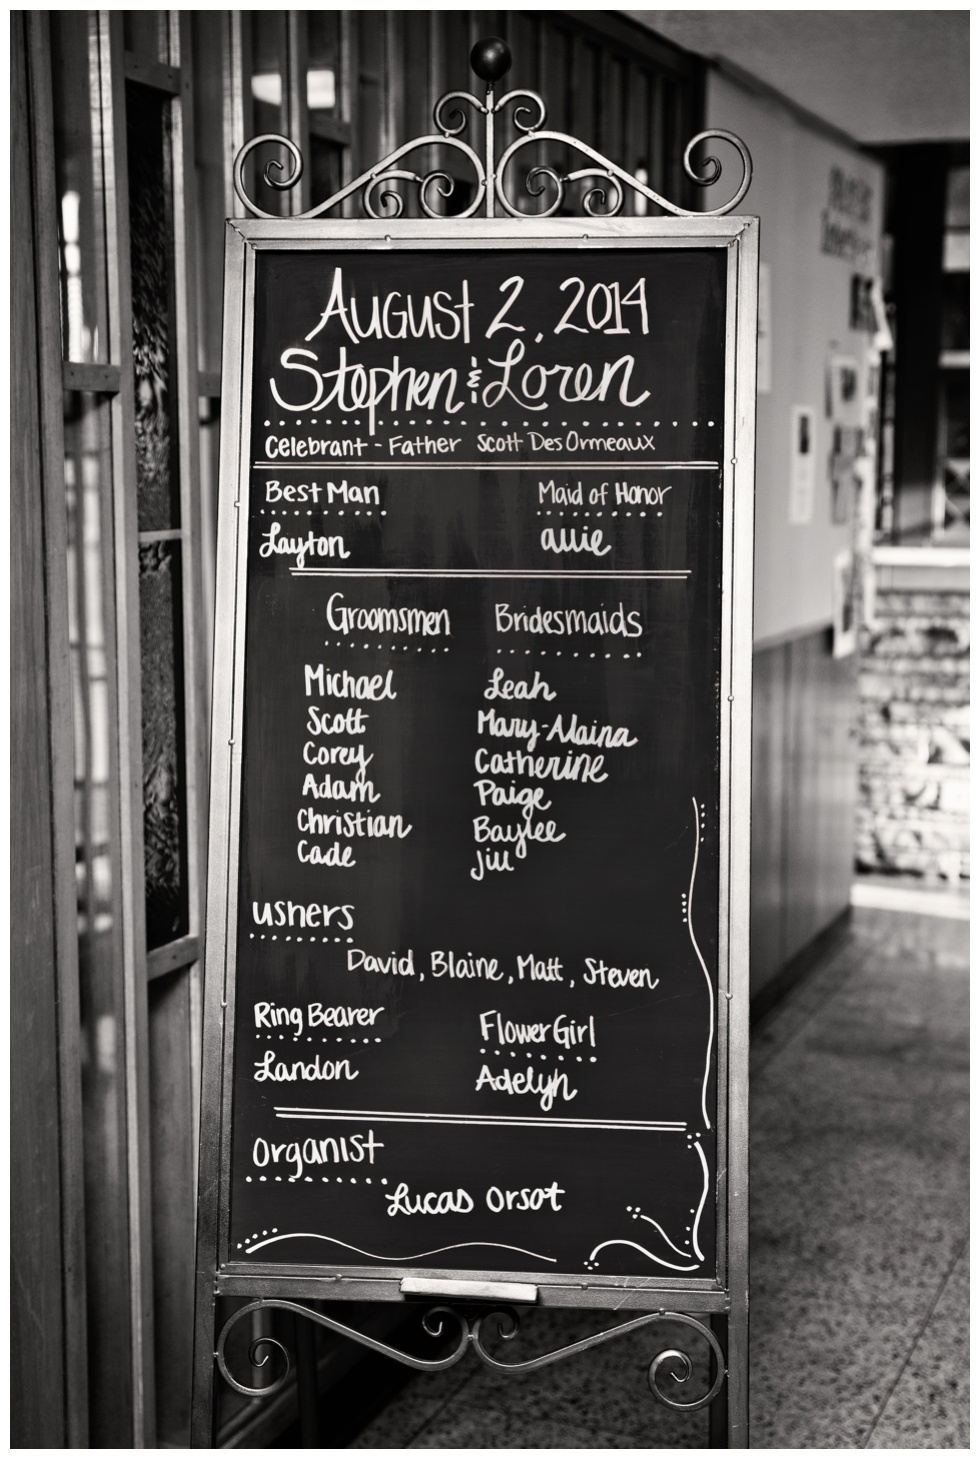 August 2, 2014
Stephen & Loren
Celebrant - Father Scott Des Ormeaux
Best Man
Maid of Honor
Layton
allie
Groomsmen
Bridesmaids
Michael
Leah
Scott
Mary-Alaina
Corey
Catherine
Adam
Paige
Christian
Baylee
Cade
Jill
ushers
David, Blaine, Matt, Steven
Ring Bearer
Flower Girl
Landon
Adelyn
organist
Lucas Orsot